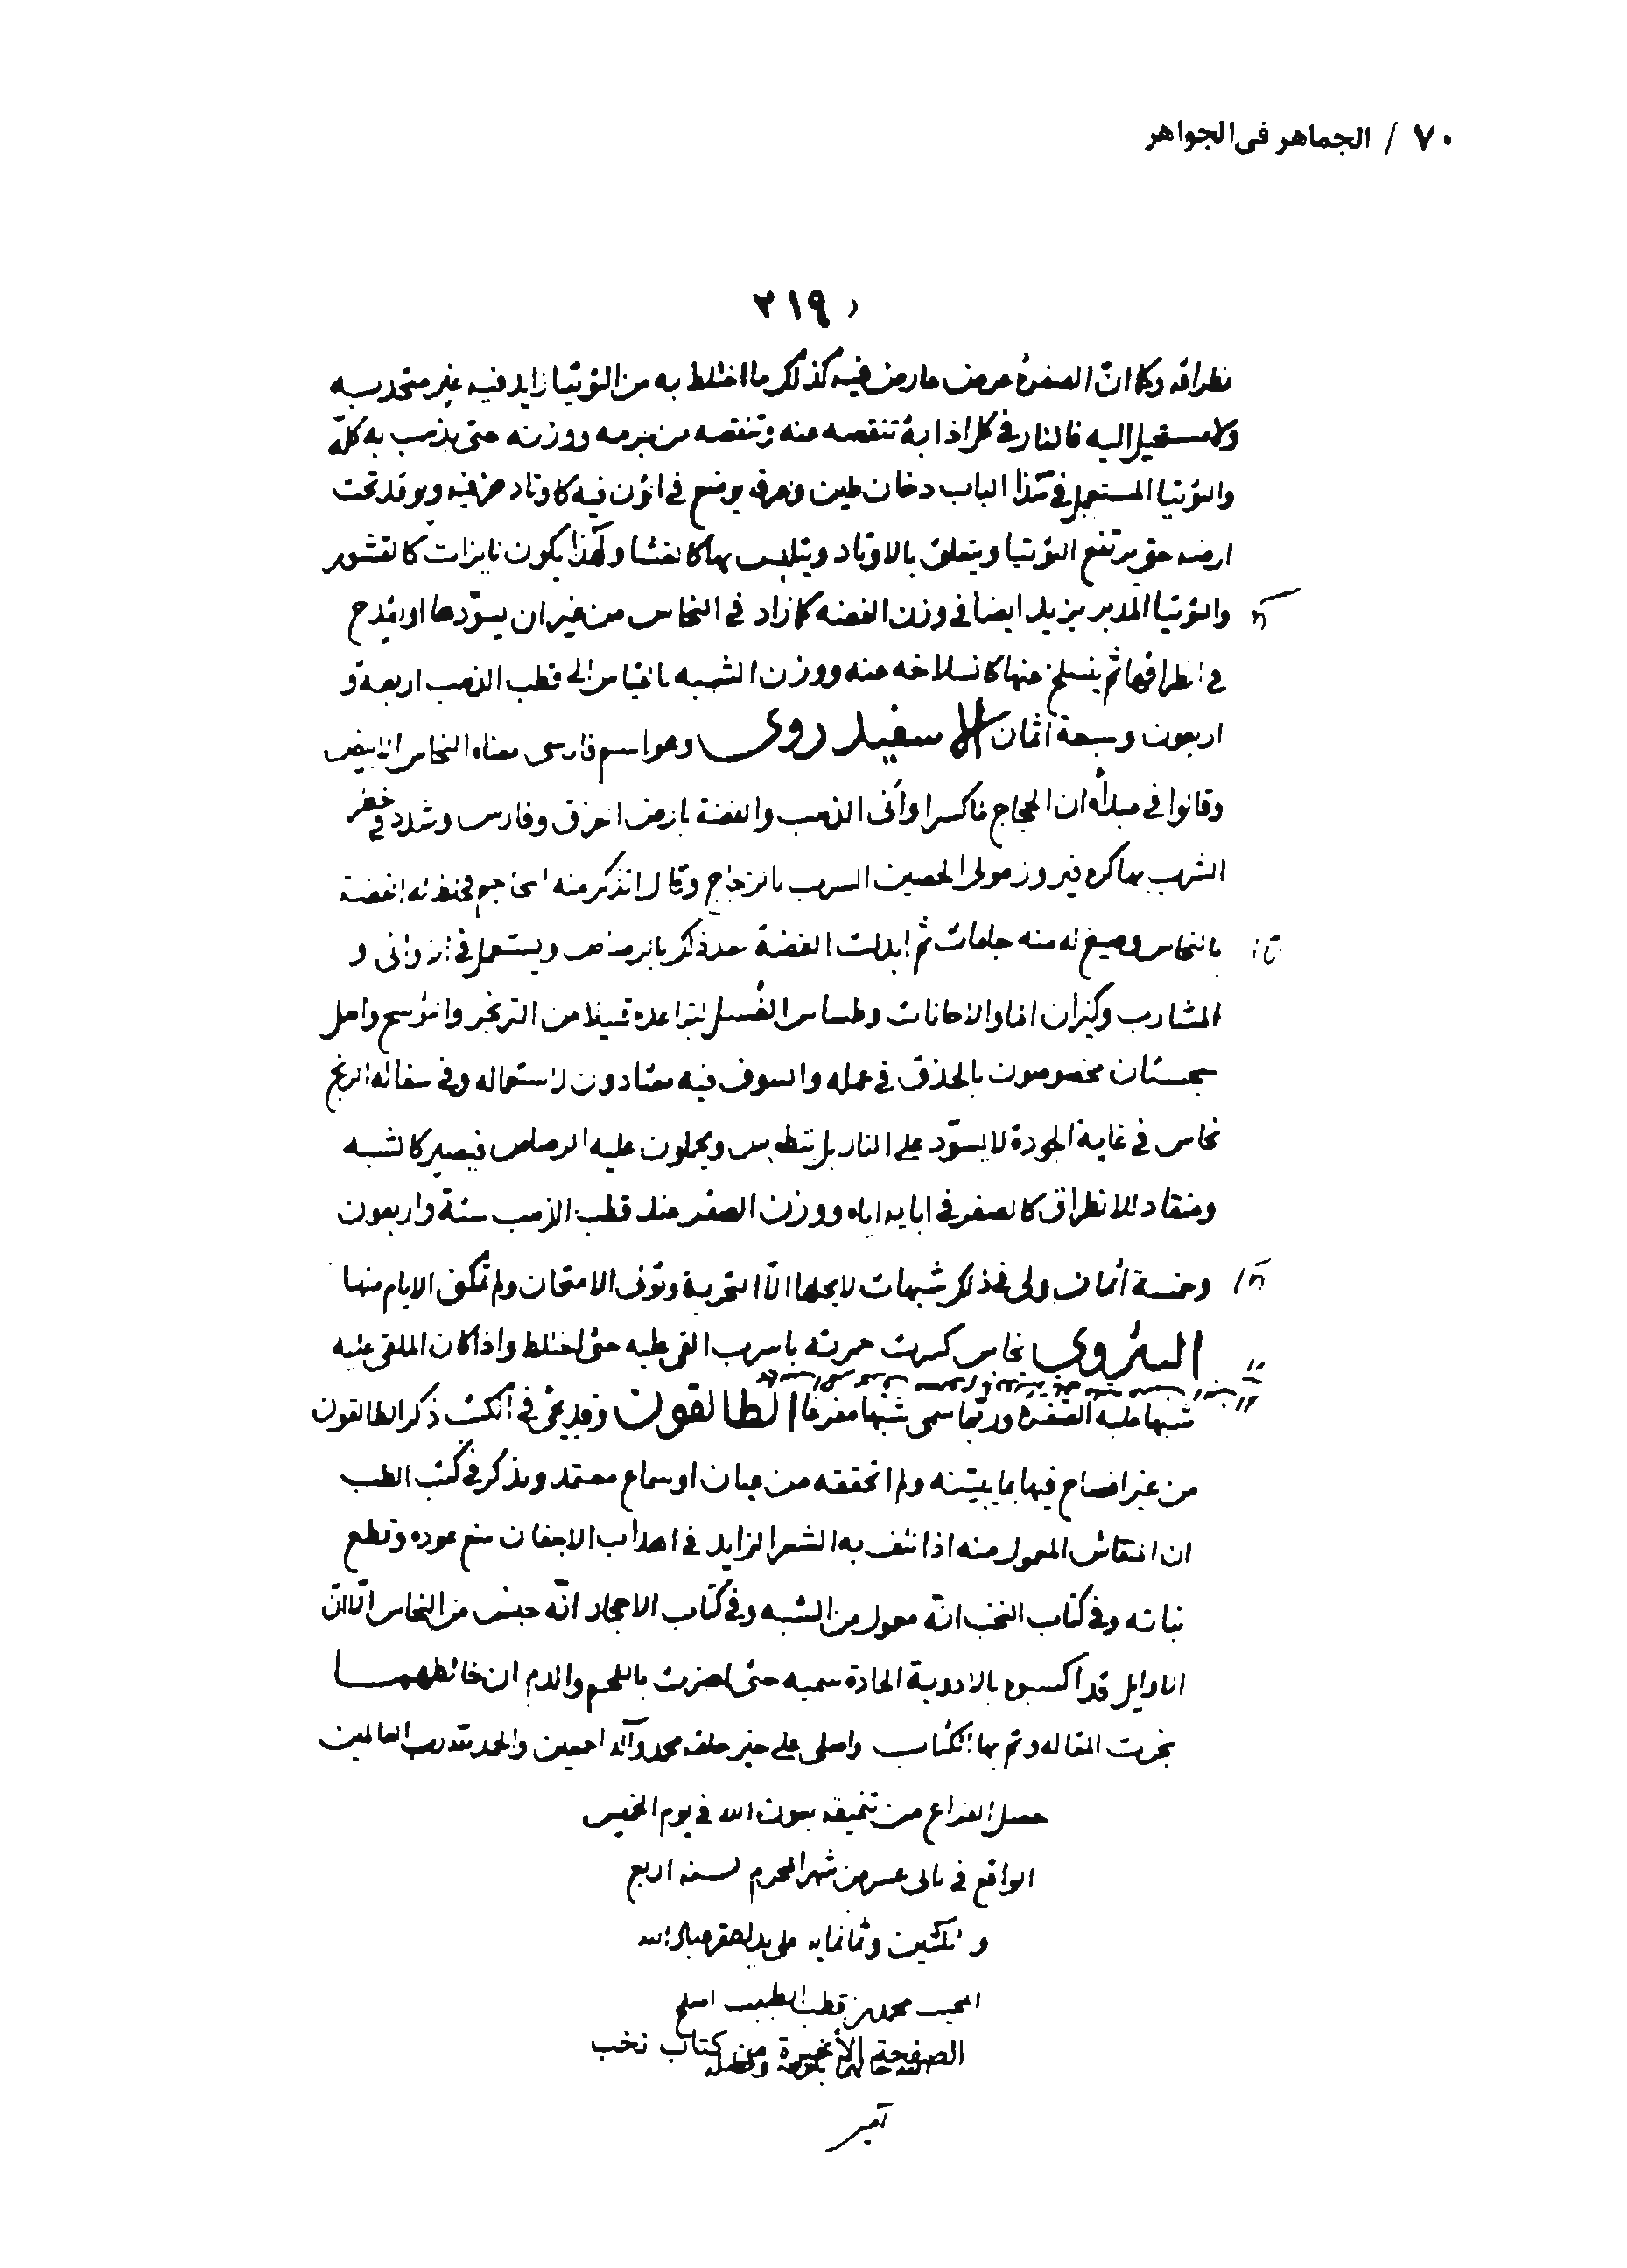 ٧٠ / الجماهر في الجواهر
٢١٩
نطراقه وكما انّ الصفرة عرض عارض فيه كذلك ما اختلط به من التوتيا زايد فيه غير متحد به
ولا مستحيل اليه فالنار في كل اذابة تنقصه عنه وتنقصه من جرمه ووزنه حتى يذهب به كلّه
والتوتيا المستعمل في هذا الباب دخان طين يوضع في اتون فيه كاوتاد خزفيه ويوقد تحت
ارضه حتى يرتفع التوتيا ويتعلق بالاوتاد ويتلبس بها كالغشا ولهذا يكون كالقشور
والتوتيا المدبر يزيد ايضا في وزن الفضه كما زاد في النحاس من غير ان يسوّدها او يقدح
في انطراقها ثم ينسلخ عنها كانسلاخه عنه ووزن الشبه بالقياس الى قطب الذهب اربعة و
اربعون وسبعة اثمان الاسفيد روى وهو اسم فارسى معناه النحاس الابيض
وقالوا في مبدأه ان الحجاج لما كسر اوانى الذهب والفضة بارض العراق وفارس وشدد في حظر
الشرب بها كره فيروز مولى الحصين الشرب بالزجاج وقال انذكر منه المحاجم فخلط له الفضة
بالنحاس وصيغ له منه جامات ثم ابدلت الفضة بعد ذلك بالرصاص ويستعمل في الاوانى و
المشارب وكيزان الما والاجانات وطساس الغسل لتباعده قليلا من التزنجر والتوسخ واهل
سجستان مخصوصون بالحذق في عمله والسوق فيه معتادون لاستعماله وفي سفاله الرنج
نحاس في غاية الجودة لا يسوّد على النار بل يتطوس ويحملون عليه الرصاص فيصير كالشبه
ومنقاد للانطراق كالصفر في ووزن الصفر عند قطب الذهب ستة واربعون
وخمسة أثمان ولى في ذلك شبهات لا يجليها الّا التجربة وتولى الامتحان ولم تمكنى الايام منها
البتروي نحاس كسرت حمرته باسرب القى عليه حتى اختلط واذا كان الملقى عليه
شبها غلبه الصفرة وربما سمى شبها مفرغا الطالقون وقد يجئ في الكتب ذكر الطالقون
من غير افصاح فيها بما يبيّنه ولم اتحققه من عيان او سماع معتمد ويذكر في كتب الطب
ان المنقاش المعمول منه اذا نتف به الشعر الزايد في اهداب الاجفان منع عوده وقطع
نباته وفي كتاب النخب انّه معمول من الشبه وفي كتاب الاحجار انّه جنس من النحاس الّا انّ
الاوايل قد اكسبوه بالادوية الحادة سميه حتى اضرت باللحم والدم ان خالطهما
نجزت المقاله وتم بها الكتاب واصلى على خير خلقه محمد وآله اجمعين والحمد لله رب العالمين
حصل الفراغ من تنميقه بعون الله في يوم الخميس
الواقع في ثانى عشر من شهر المحرم لسنه اربع
و ثلثين وثمانمايه على يد احقر عباد الله
محمد بن قطب الطبيب اصلح
الصفحة الأخيرة من كتاب نخب
الله حالهما بكرمه وفضله